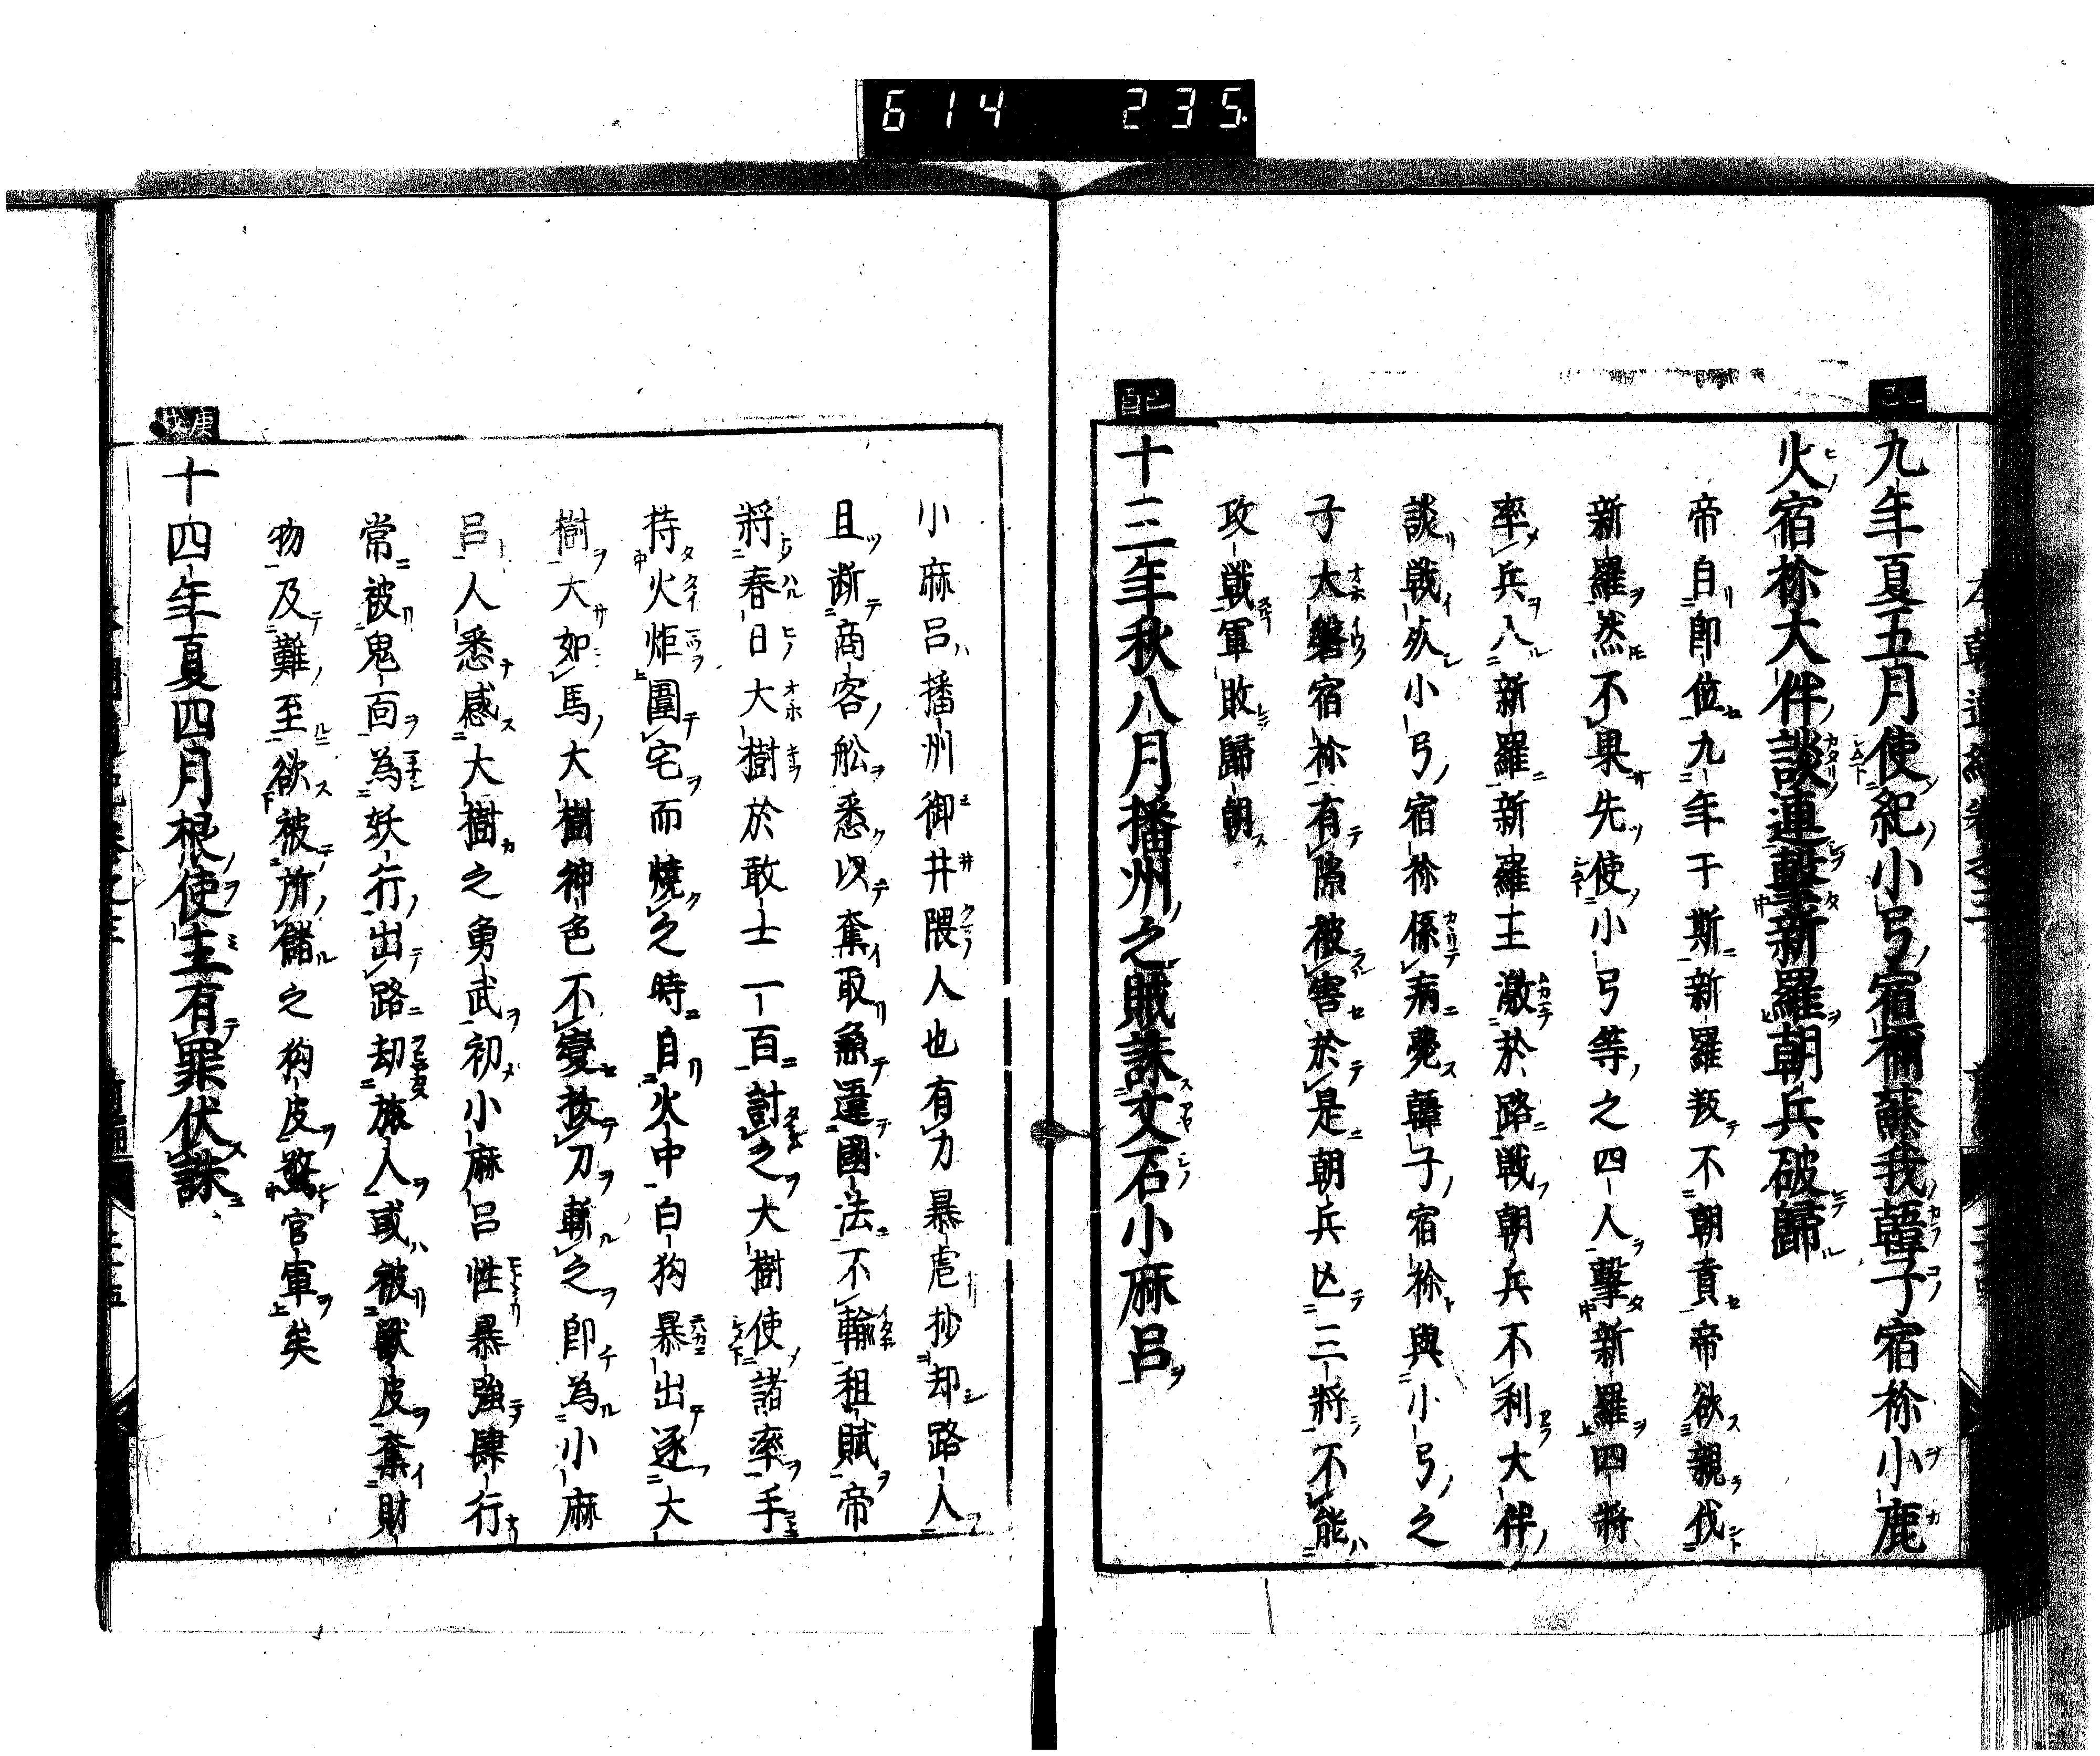 614 235
九年夏五月使紀小弓宿禰蘇我韓子宿祢小鹿
火宿祢大伴談連擊新羅朝兵破歸
帝自即位九年于斯新羅叛不朝貢帝欲親伐
新羅然不果先使小弓等之四人擊新羅四將
率兵入新羅新羅王激於路戦朝兵不利大伴
談戦死小弓宿祢係病薨韓子宿祢與小弓之
子大磐宿祢有隙被害於是朝兵亡三將不能
攻戦軍敗歸朝
己酉
十三年秋八月播州之賊誅文石小麻呂
小麻呂播州御井隈人也有力暴虐抄却路人
且断商客舩悉以奪取兼違國法不輸租賦帝
將春日大樹於敢士一百討之大樹使諸率手
持火炬圍宅而燒之時自火中白狗暴出逐大
樹大如馬大樹神色不變拔刀斬之即為小麻
呂人悉感大樹之勇武初小麻呂性暴強肆行
常被鬼面為妖行出路却旅人或被獸皮奪財
物及難至欲被所儲之狗皮驚官軍矣
庚戌
十四年夏四月根使主有罪伏誅